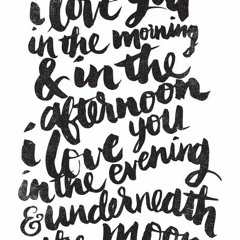 i love you
in the morning
& in the
afternoon
i love you
in the evening
& underneath
the moon